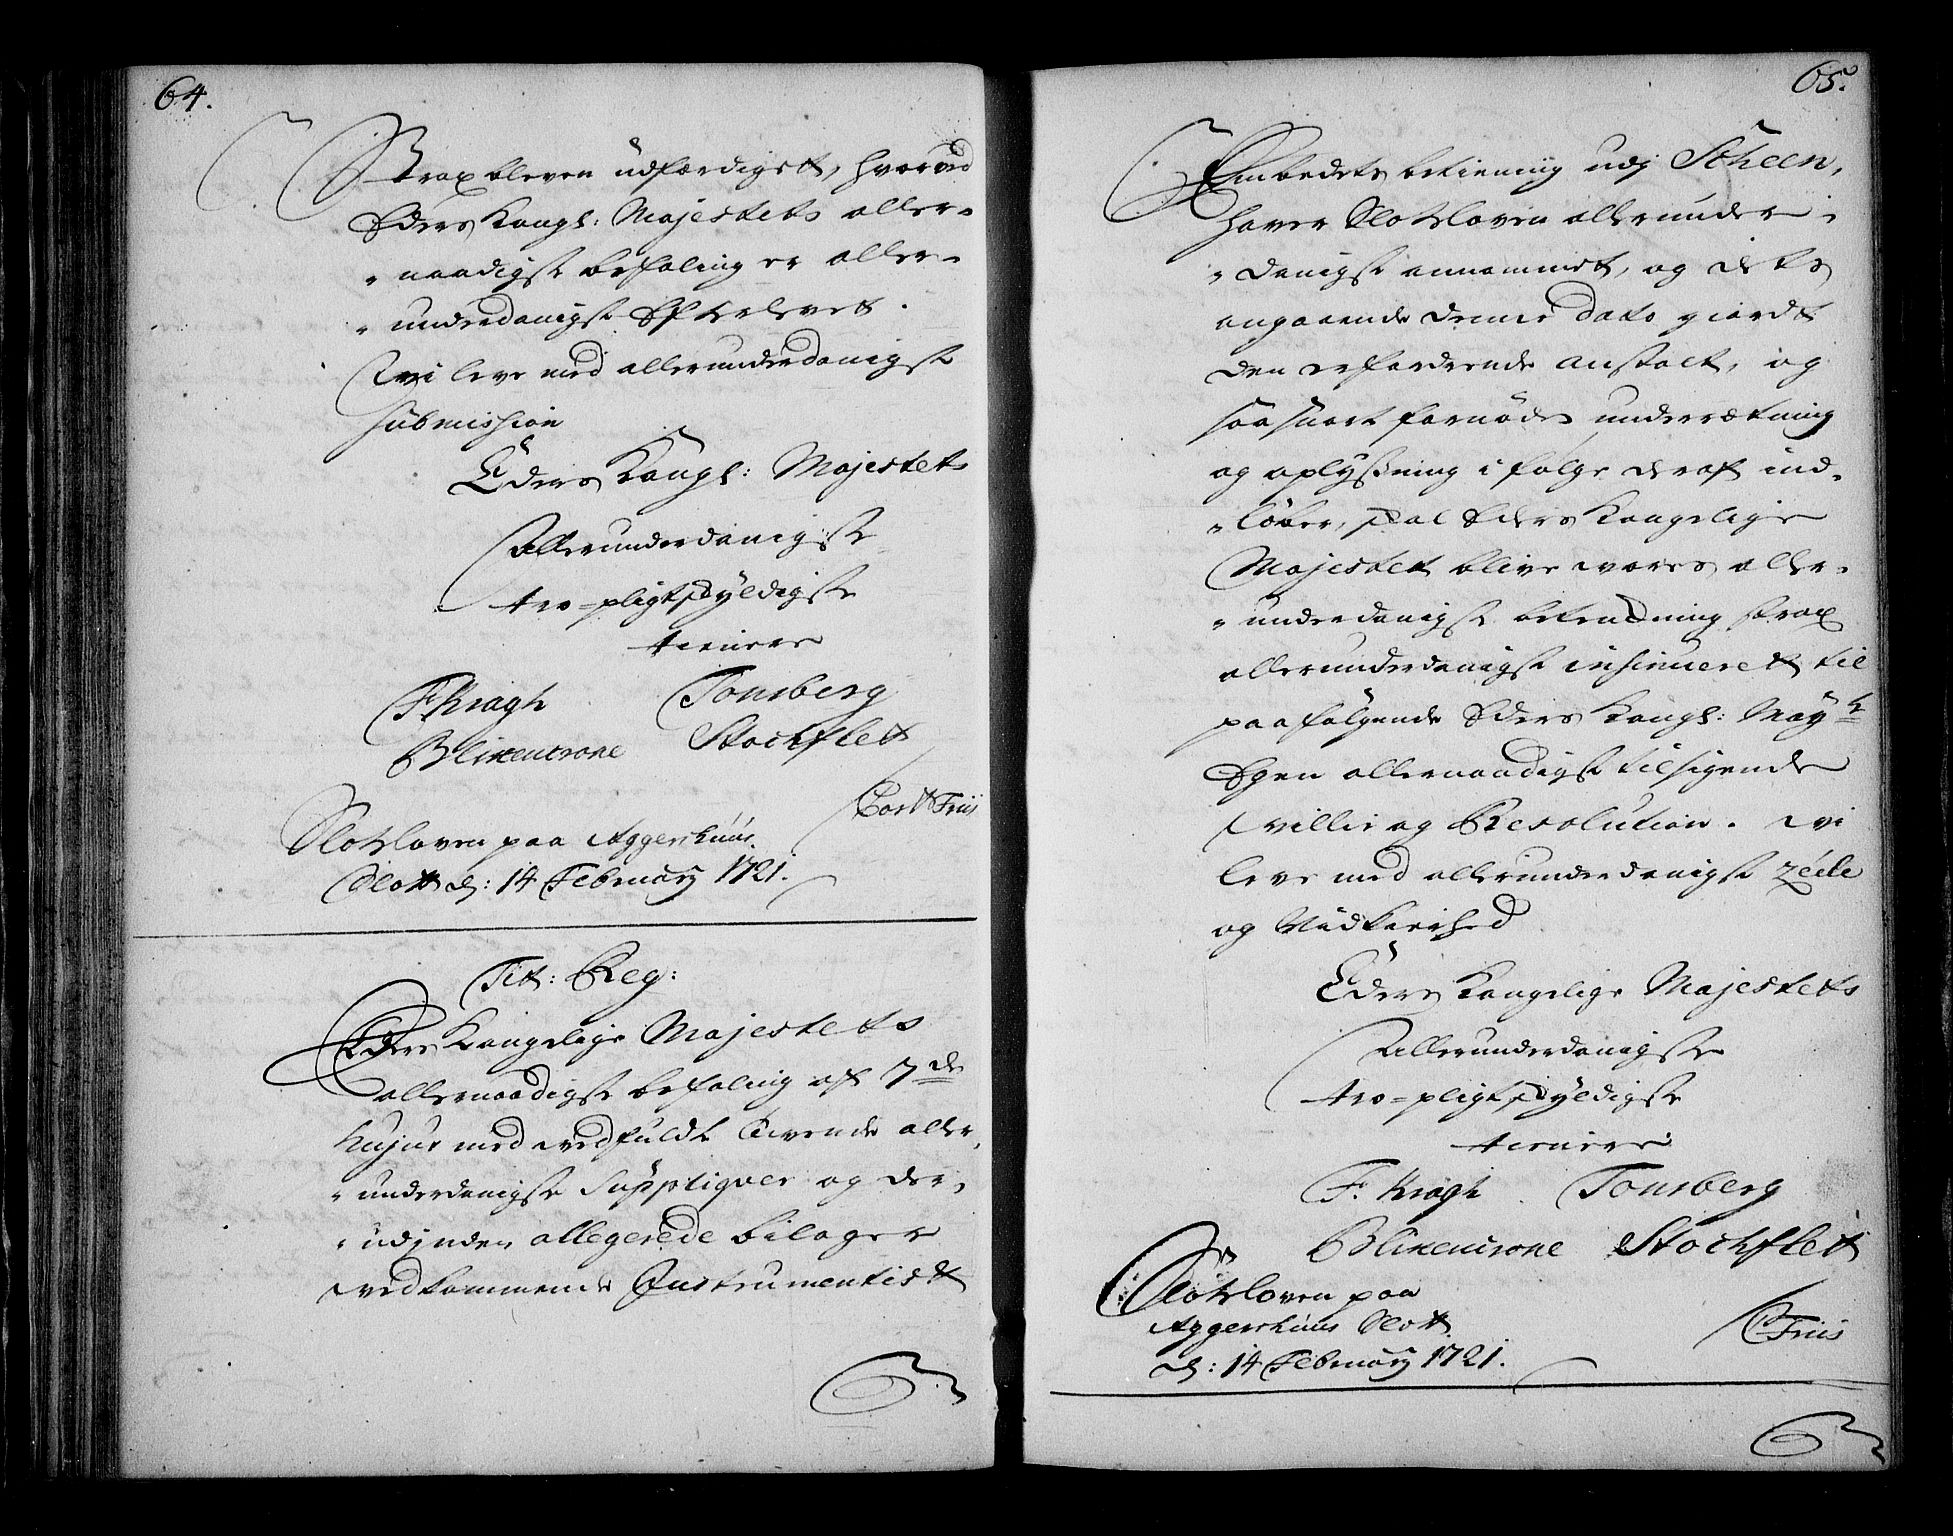 64.
Strax bleven udfærdiget, hvorved
Eders Kongl: Majestets aller-
naadigste befaling er aller-
underdanigst Efterlevet.
Vi leve med allerunderdanigst
submission
Eders Kongl: Majestets
Allerunderdanigste
troe-pligtskyldigste
tienere
F. Kragh Tonsberg
Blixencrone Stochflett
Bort Friis
Slotzloven paa Aggershuus
Slott d: 14 Februarij 1721.
Tit: Reg:
Eders Kongelige Majestets
allernaadigste befaling af 7de
hujus med vedfuldt levende aller-
underdanigste Suppliqver og der-
udinden allegerede bilager
vedkommende Instrumentist
65.
Embedets betiening udj Scheen,
haver Slotzloven allerunder-
danigst annammet, og dets
angaaende denne dato giordt
den erfordrende anstalt, og
saasnart fornøden underrætning
og oplysning i følge deraf ind-
løber, skal Eders Kongelige
Majestet blive vores aller-
underdanigste betenckning strax
allerunderdanigst insinueret til
paafølgende Eders Kongl: May:ts
Egen allernaadigst tilsigende
villie og Resolution. Vi
leve med allerunderdanigst zeéle
og Nidkierhed
Eders Kongelige Majestets
Allerunderdanigste
troe-pligtskyldigste
tienere
F. Kragh. Tonsberg
Blixencrone Stochflett
Slotzloven paa
Aggershuus Slott Friis
d: 14 Februarij 1721.